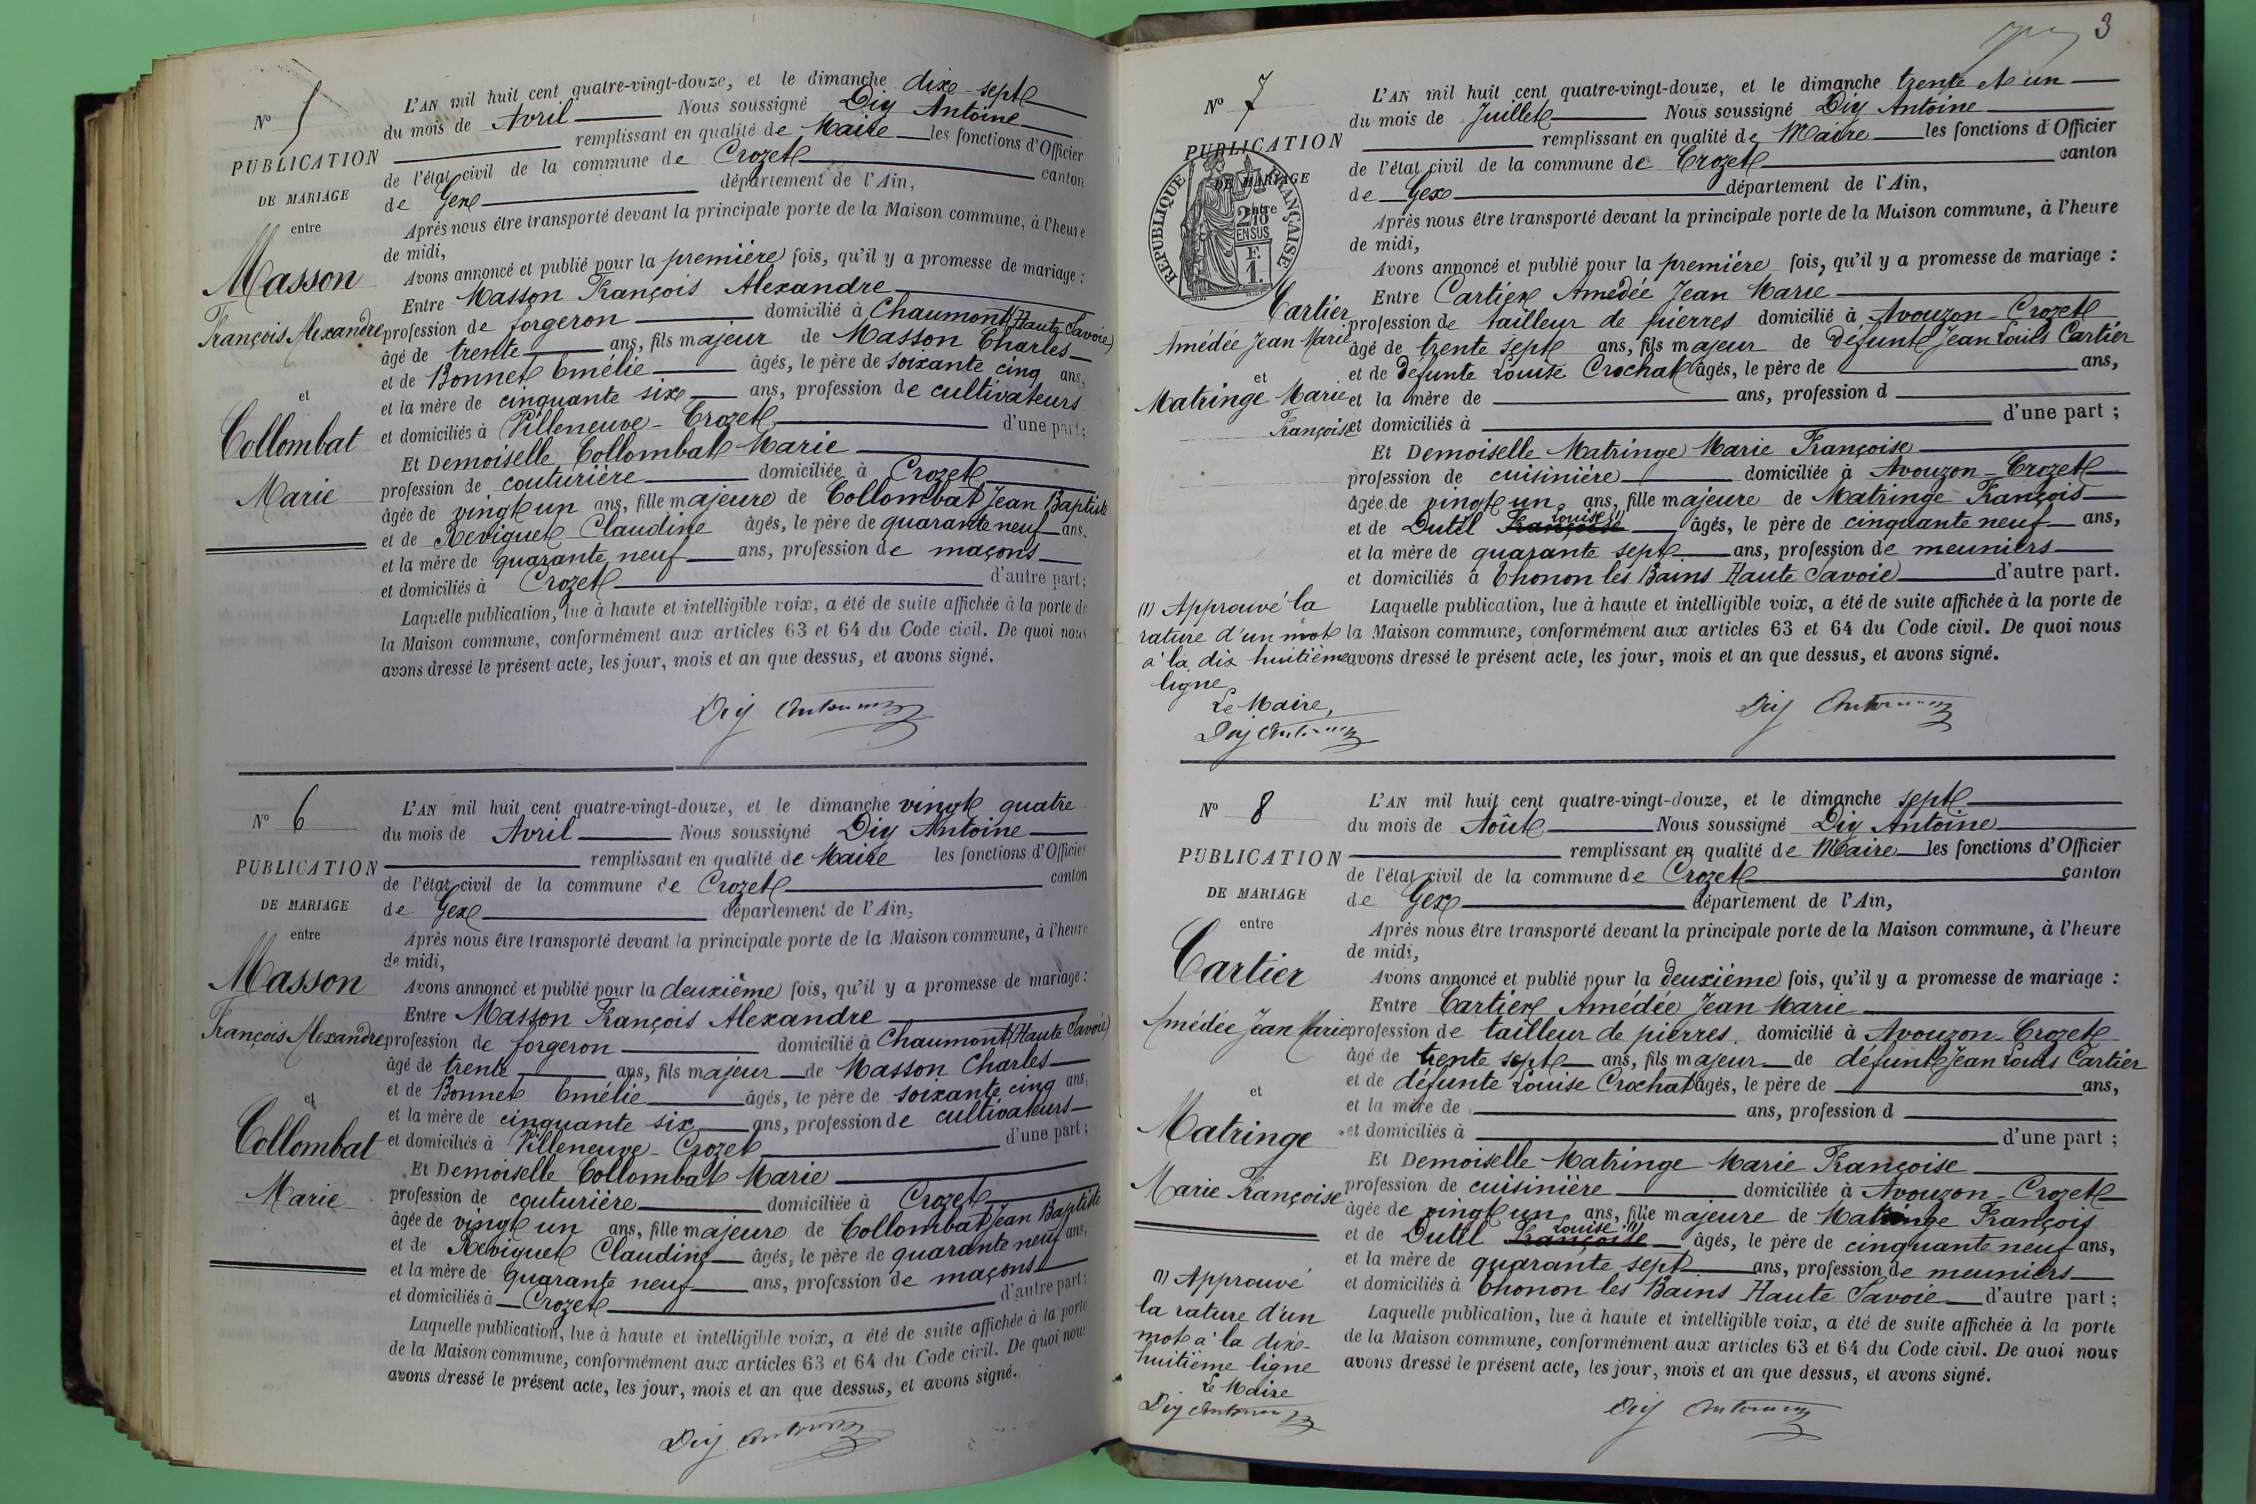 N° 5
PUBLICATION
DE MARIAGE
entre
Masson
François Alexandre
et
Collombat
Marie
L'AN mil huit cent quatre-vingt-douze, et le dimanche dixe sept
du mois de Avril Nous soussigné Diy Antoine
remplissant en qualité de Maire les fonctions d'Officier
de l'état civil de la commune de Crozet canton
de Gex département de l'Ain,
Après nous être transporté devant la principale porte de la Maison commune, à l'heure
de midi,
Avons annoncé et publié pour la première fois, qu'il y a promesse de mariage :
Entre Masson François Alexandre
profession de forgeron domicilié à Chaumont (Haute Savoie)
âgé de trente ans, fils majeur de Masson Charles
et de Bonnet Emélie âgés, le père de soixante cinq ans,
et la mère de cinquante six ans, profession de cultivateurs
et domiciliés à Villeneuve-Crozet d'une part ;
Et Demoiselle Collombat Marie
profession de couturière domiciliée à Crozet
âgée de vingt un ans, fille majeure de Collombat Jean Baptiste
et de Reviguet Claudine âgés, le père de quarante neuf ans,
et la mère de quarante neuf ans, profession de maçons
et domiciliés à Crozet d'autre part ;
Laquelle publication, lue à haute et intelligible voix, a été de suite affichée à la porte de
la Maison commune, conformément aux articles 63 et 64 du Code civil. De quoi nous
avons dressé le présent acte, les jour, mois et an que dessus, et avons signé.
Diy Antoine
N° 6
PUBLICATION
DE MARIAGE
entre
Masson
François Alexandre
et
Collombat
Marie
L'AN mil huit cent quatre-vingt-douze, et le dimanche vingt quatre
du mois de Avril Nous soussigné Diy Antoine
remplissant en qualité de Maire les fonctions d'Officier
de l'état civil de la commune de Crozet canton
de Gex département de l'Ain,
Après nous être transporté devant la principale porte de la Maison commune, à l'heure
de midi,
Avons annoncé et publié pour la deuxième fois, qu'il y a promesse de mariage :
Entre Masson François Alexandre
profession de forgeron domicilié à Chaumont (Haute Savoie)
âgé de trente ans, fils majeur de Masson Charles
et de Bonnet Emélie âgés, le père de soixante cinq ans,
et la mère de cinquante six ans, profession de cultivateurs
et domiciliés à Villeneuve-Crozet d'une part ;
Et Demoiselle Collombat Marie
profession de couturière domiciliée à Crozet
âgée de vingt un ans, fille majeure de Collombat Jean Baptiste
et de Reviguet Claudine âgés, le père de quarante neuf ans,
et la mère de quarante neuf ans, profession de maçons
et domiciliés à Crozet d'autre part ;
Laquelle publication, lue à haute et intelligible voix, a été de suite affichée à la porte
de la Maison commune, conformément aux articles 63 et 64 du Code civil. De quoi nous
avons dressé le présent acte, les jour, mois et an que dessus, et avons signé.
Diy Antoine
3
N° 7
PUBLICATION
DE MARIAGE
entre
RÉPUBLIQUE FRANÇAISE
2/10
EN SUS
F.
1.
Cartier
Amédée Jean Marie
et
Matringe Marie
Françoise
L'AN mil huit cent quatre-vingt-douze, et le dimanche trente et un
du mois de Juillet Nous soussigné Diy Antoine
remplissant en qualité de Maire les fonctions d'Officier
de l'état civil de la commune de Crozet canton
de Gex département de l'Ain,
Après nous être transporté devant la principale porte de la Maison commune, à l'heure
de midi,
Avons annoncé et publié pour la première fois, qu'il y a promesse de mariage :
Entre Cartier Amédée Jean Marie
profession de tailleur de pierres domicilié à Avouzon-Crozet
âgé de trente sept ans, fils majeur de défunt Jean Louis Cartier
et de défunte Louise Crochat âgés, le père de ans,
et la mère de ans, profession d
et domiciliés à d'une part ;
Et Demoiselle Matringe Marie Françoise
profession de cuisinière domiciliée à Avouzon-Crozet
âgée de vingt un ans, fille majeure de Matringe François
et de Dutil Françoise Louise (1) âgés, le père de cinquante neuf ans,
et la mère de quarante sept ans, profession de meuniers
et domiciliés à Thonon les Bains Haute Savoie d'autre part.
Laquelle publication, lue à haute et intelligible voix, a été de suite affichée à la porte de
la Maison commune, conformément aux articles 63 et 64 du Code civil. De quoi nous
avons dressé le présent acte, les jour, mois et an que dessus, et avons signé.
(1) Approuvé la
rature d'un mot
à la dix huitième
ligne
Le Maire,
Diy Antoine
Diy Antoine
N° 8
PUBLICATION
DE MARIAGE
entre
Cartier
Amédée Jean Marie
et
Matringe
Marie Françoise
L'AN mil huit cent quatre-vingt-douze, et le dimanche sept
du mois de Août Nous soussigné Diy Antoine
remplissant en qualité de Maire les fonctions d'Officier
de l'état civil de la commune de Crozet canton
de Gex département de l'Ain,
Après nous être transporté devant la principale porte de la Maison commune, à l'heure
de midi,
Avons annoncé et publié pour la deuxième fois, qu'il y a promesse de mariage :
Entre Cartier Amédée Jean Marie
profession de tailleur de pierres domicilié à Avouzon-Crozet
âgé de trente sept ans, fils majeur de défunt Jean Louis Cartier
et de défunte Louise Crochat âgés, le père de ans,
et la mère de ans, profession d
et domiciliés à d'une part ;
Et Demoiselle Matringe Marie Françoise
profession de cuisinière domiciliée à Avouzon-Crozet
âgée de vingt un ans, fille majeure de Matringe François
et de Dutil Françoise Louise (1) âgés, le père de cinquante neuf ans,
et la mère de quarante sept ans, profession de meuniers
et domiciliés à Thonon les Bains Haute Savoie d'autre part ;
Laquelle publication, lue à haute et intelligible voix, a été de suite affichée à la porte
de la Maison commune, conformément aux articles 63 et 64 du Code civil. De quoi nous
avons dressé le présent acte, les jour, mois et an que dessus, et avons signé.
(1) Approuvé
la rature d'un
mot à la dixe-
huitième ligne
Le Maire
Diy Antoine
Diy Antoine